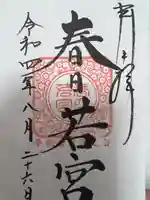 奉拝
春日若宮
令和四年八月二十六日